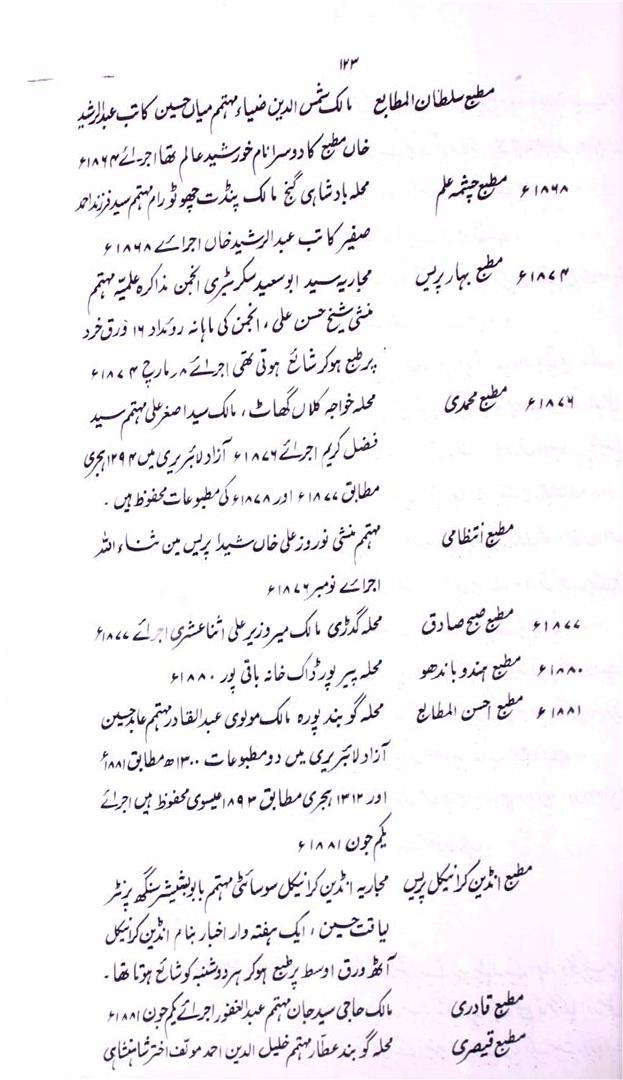 ۱۲۳
مطبع سلطان المطابع مالک شمس الدین ضیاء مہتمم میاں حسین کاتب عبدالرشید
خاں مطبع کا دوسرا نام خورشید عالم تھا اجرائے ۱۸۶۴ء
۱۸۶۸ء مطبع چشمہ علم محلہ بادشاہی گنج مالک پنڈت چھوٹو رام مہتمم سید فرزند احمد
صفیر کاتب عبدالرشید خاں اجرائے ۱۸۶۸ء
۱۸۷۴ء مطبع بہار پریس مجاریہ سید ابو سعید سکریٹری انجمن مذاکرہ علمیہ مہتمم
منشی شیخ حسن علی، انجمن کی ماہانہ روئداد ۱۶ ورق خرد
پر طبع ہو کر شائع ہوتی تھی اجرائے ۸ مارچ ۱۸۷۴ء
۱۸۷۶ء مطبع محمدی محلہ خواجہ کلاں گھاٹ، مالک سید اصغر علی مہتمم سید
فضل کریم اجرائے ۱۸۷۶ء آزاد لائبریری میں ۱۲۹۴ ہجری
مطابق ۱۸۷۷ء اور ۱۸۷۸ء کی مطبوعات محفوظ ہیں۔
مطبع انتظامی مہتمم منشی نوروز علی خاں شیدا پریس مین ثناء اللہ
اجرائے نومبر ۱۸۷۶ء
۱۸۷۷ء مطبع صبح صادق محلہ گدڑی مالک میر وزیر علی اثنا عشری اجرائے ۱۸۷۷ء
۱۸۸۰ء مطبع ہندو باندھو محلہ پیر پور ڈاک خانہ باقی پور ۱۸۸۰ء
۱۸۸۱ء مطبع احسن المطابع محلہ گوبند پورہ مالک مولوی عبدالقادر مہتمم عابد حسین
آزاد لائبریری میں دو مطبوعات ۱۳۰۰ھ مطابق ۱۸۸۱ء
اور ۱۳۱۲ ہجری مطابق ۱۸۹۳ عیسوی محفوظ ہیں اجرائے
یکم جون ۱۸۸۱ء
مطبع انڈین کرانیکل پریس مجاریہ انڈین کرانیکل سوسائٹی مہتمم بابو بشیشر سنگھ پرنٹر
لیاقت حسین، ایک ہفتہ وار اخبار بنام انڈین کرانیکل
آٹھ ورق اوسط پر طبع ہو کر ہر دوشنبہ کو شائع ہوتا تھا۔
مطبع قادری مالک حاجی سید جان مہتمم عبدالغفور اجرائے یکم جون ۱۸۸۱ء
مطبع قیصری محلہ گوبند عطار مہتمم خلیل الدین احمد مولف اختر شاہنشاہی